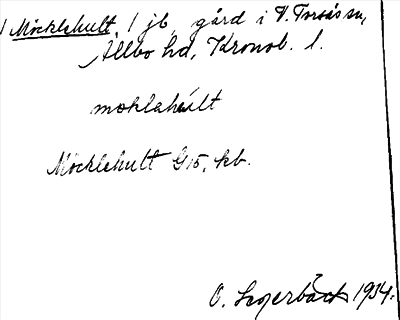 Möcklehult, 1 jb. gård i V. Torsås sn,
Allbo hd, Kronob. l.
moklahult
Möcklehult G15, kb.
O. Lagerbäck 1934.